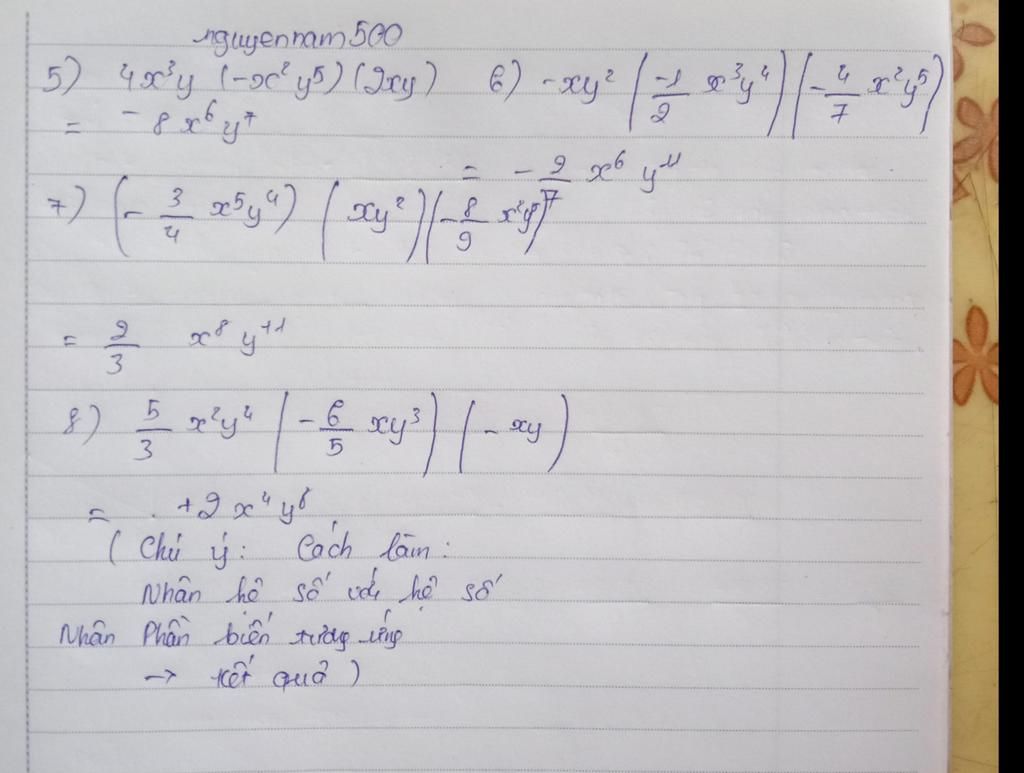 nguyennam500
5) 4x³y (-x²y⁵)(2xy) 6) -xy² (-1/2 x³y⁴)(-4/7 x²y⁵)
= -8x⁶y⁷
= -2/7 x⁶ y¹¹
7) (-3/4 x⁵y⁴) (xy²)(-8/9 x²y⁵)
= 2/3 x⁸y¹¹
8) 5/3 x²y⁴ (-6/5 xy³) (-xy)
= +2x⁴y⁸
( Chú ý: Cách làm:
Nhân hệ số với hệ số
Nhân Phần biến tương ứng
→ Kết quả )